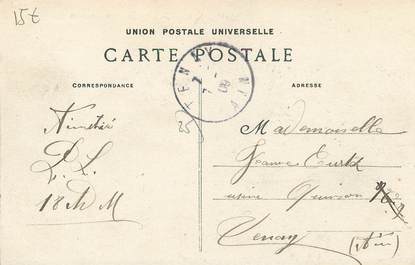 15€
UNION POSTALE UNIVERSELLE
CARTE POSTALE
CORRESPONDANCE
ADRESSE
TENAY
AIN
09
25
Amitiés
18 M
Mademoiselle
Jeanne
usine Quinson
Tenay
(Ain)